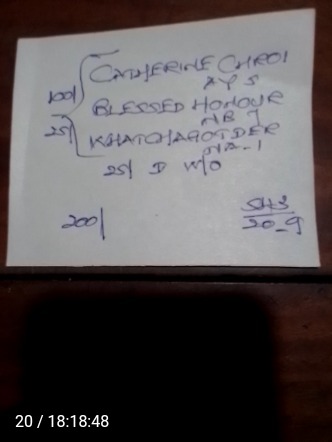 CATHERINE CHROI
100/ AY 5
BLESSED HONOUR
25/ NB 7
KHATCHAROTDER
NA-1
25/ D W/O
200/ SH3
20-9
20 / 18:18:48